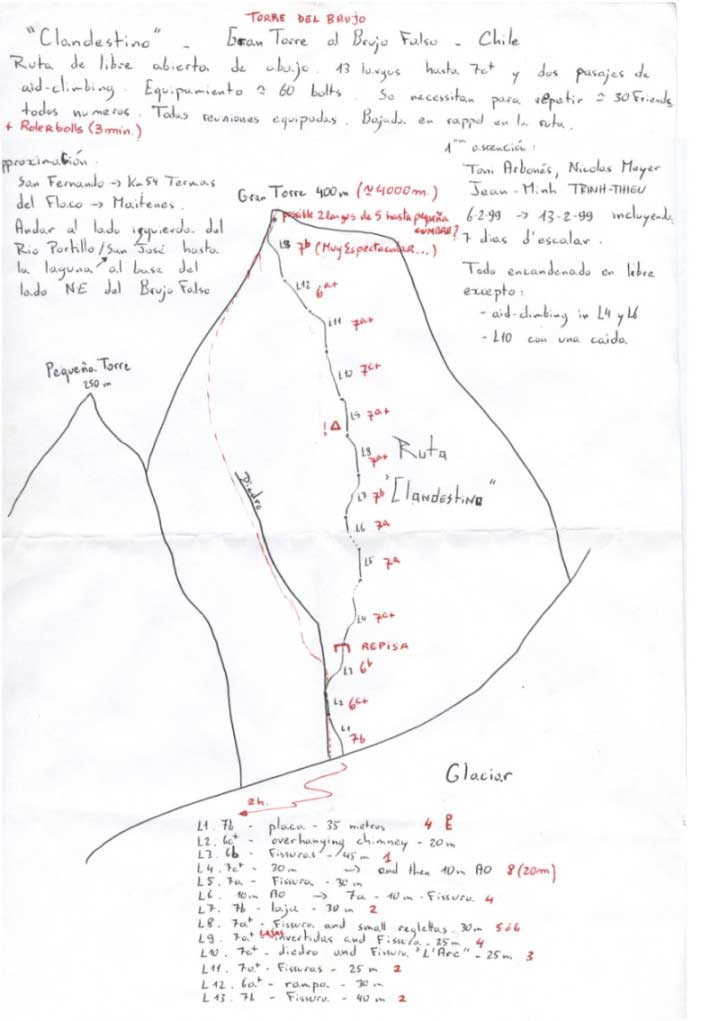 TORRE DEL BRUJO
"Clandestino" - Gran Torre al Brujo Falso - Chile
Ruta de libre abierta de abajo. 13 largos hasta 7c+ y dos pasajes de
aid-climbing. Equipamiento ≃ 60 bolts. Se necessitan para repetir ≃ 30 Friends
todos numeros. Todas reuniones equipadas. Bajada en rappel en la ruta.
+ Rolerbolts (3 min.)
pproximación.
San Fernando -> Km 54 Termas
del Flaco -> Maitenes.
Andar al lado izquierdo del
Rio Portillo/San José hasta
la laguna al base del
lado NE del Brujo Falso
1 ascención:
Toni Arbonés, Nicolas Meyer
Jean-Minh TRINH-THIEU
6-2-99 -> 13-2-99 incluyendo
7 dias d'escalar.
Todo encandenado en libre
excepto:
- aid-climbing in L4 y L6
- L10 con una caida.
Gran Torre 400m (≃4000m.)
posible 2 largos de 5 hasta pequeña
CUMBRE?
L8 7b (Muy Espectacular...)
L12 6a+
L11 7a+
L10 7c+
L9 7a+
! Δ
L8 7a+
Ruta
"Clandestino"
L7 7b
L6 7a
L5 7a
L4 7c+
REPISA
L3 6b
L2 6c+
L1 7b
Pequeña Torre
250 m
Diedro
Glaciar
2h.
L1. 7b - placa - 35 metros 4
L2. 6c+ - overhanging chimney - 20m
L3. 6b - Fissuras - 45m 1
L4. 7c+ - 30m -> and then 10m A0 8 (20m)
L5. 7a - Fissura - 30m
L6. 10m A0 -> 7a - 10m - Fissura. 4
L7. 7b - laja - 30m 2
L8. 7a+ - Fissura and small reglettas. 30m 5ó6
L9. 7a+ invertidas and Fissura - 25m 4
L10. 7c+ - diedro and Fissura "L'Arc" - 25m 3
L11. 7a+ - Fissuras - 25m 2
L12. 6a+ - rampa - 30m
L13. 7b - Fissura - 40m 2